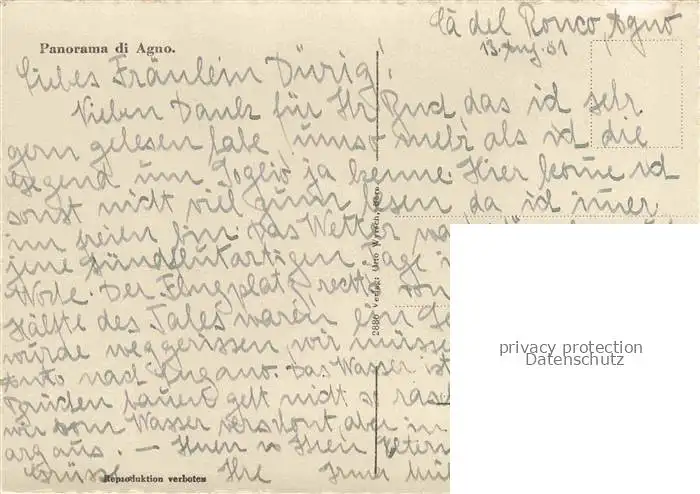 Cà del Ronco, Agno
13. Aug. 61
Panorama di Agno.
Liebes Fräulein Dürig!
Vielen Dank für Ihr Buch, das ich sehr
gern gelesen habe umso mehr als ich die
Gegend um Soglio ja kenne. Hier kome ich
sonst nicht viel zum lesen da ich imer
im freien bin. Das Wetter
jene sündflutartigen Tage
Woche. Der Flugplatz, rechte von
Hälfte des Tales waren ein
wurde weggerissen, wir müsse
Auto nach Lugano. Das Wasser ist
Brücken bauen geht nicht so ras
wir vom Wasser verschont, aber in
arg aus. — Ihnen u Ihren Eltern
Grüsse Ihre Irma
Reproduktion verboten
2886 Verlag: Otto
privacy protection
Datenschutz